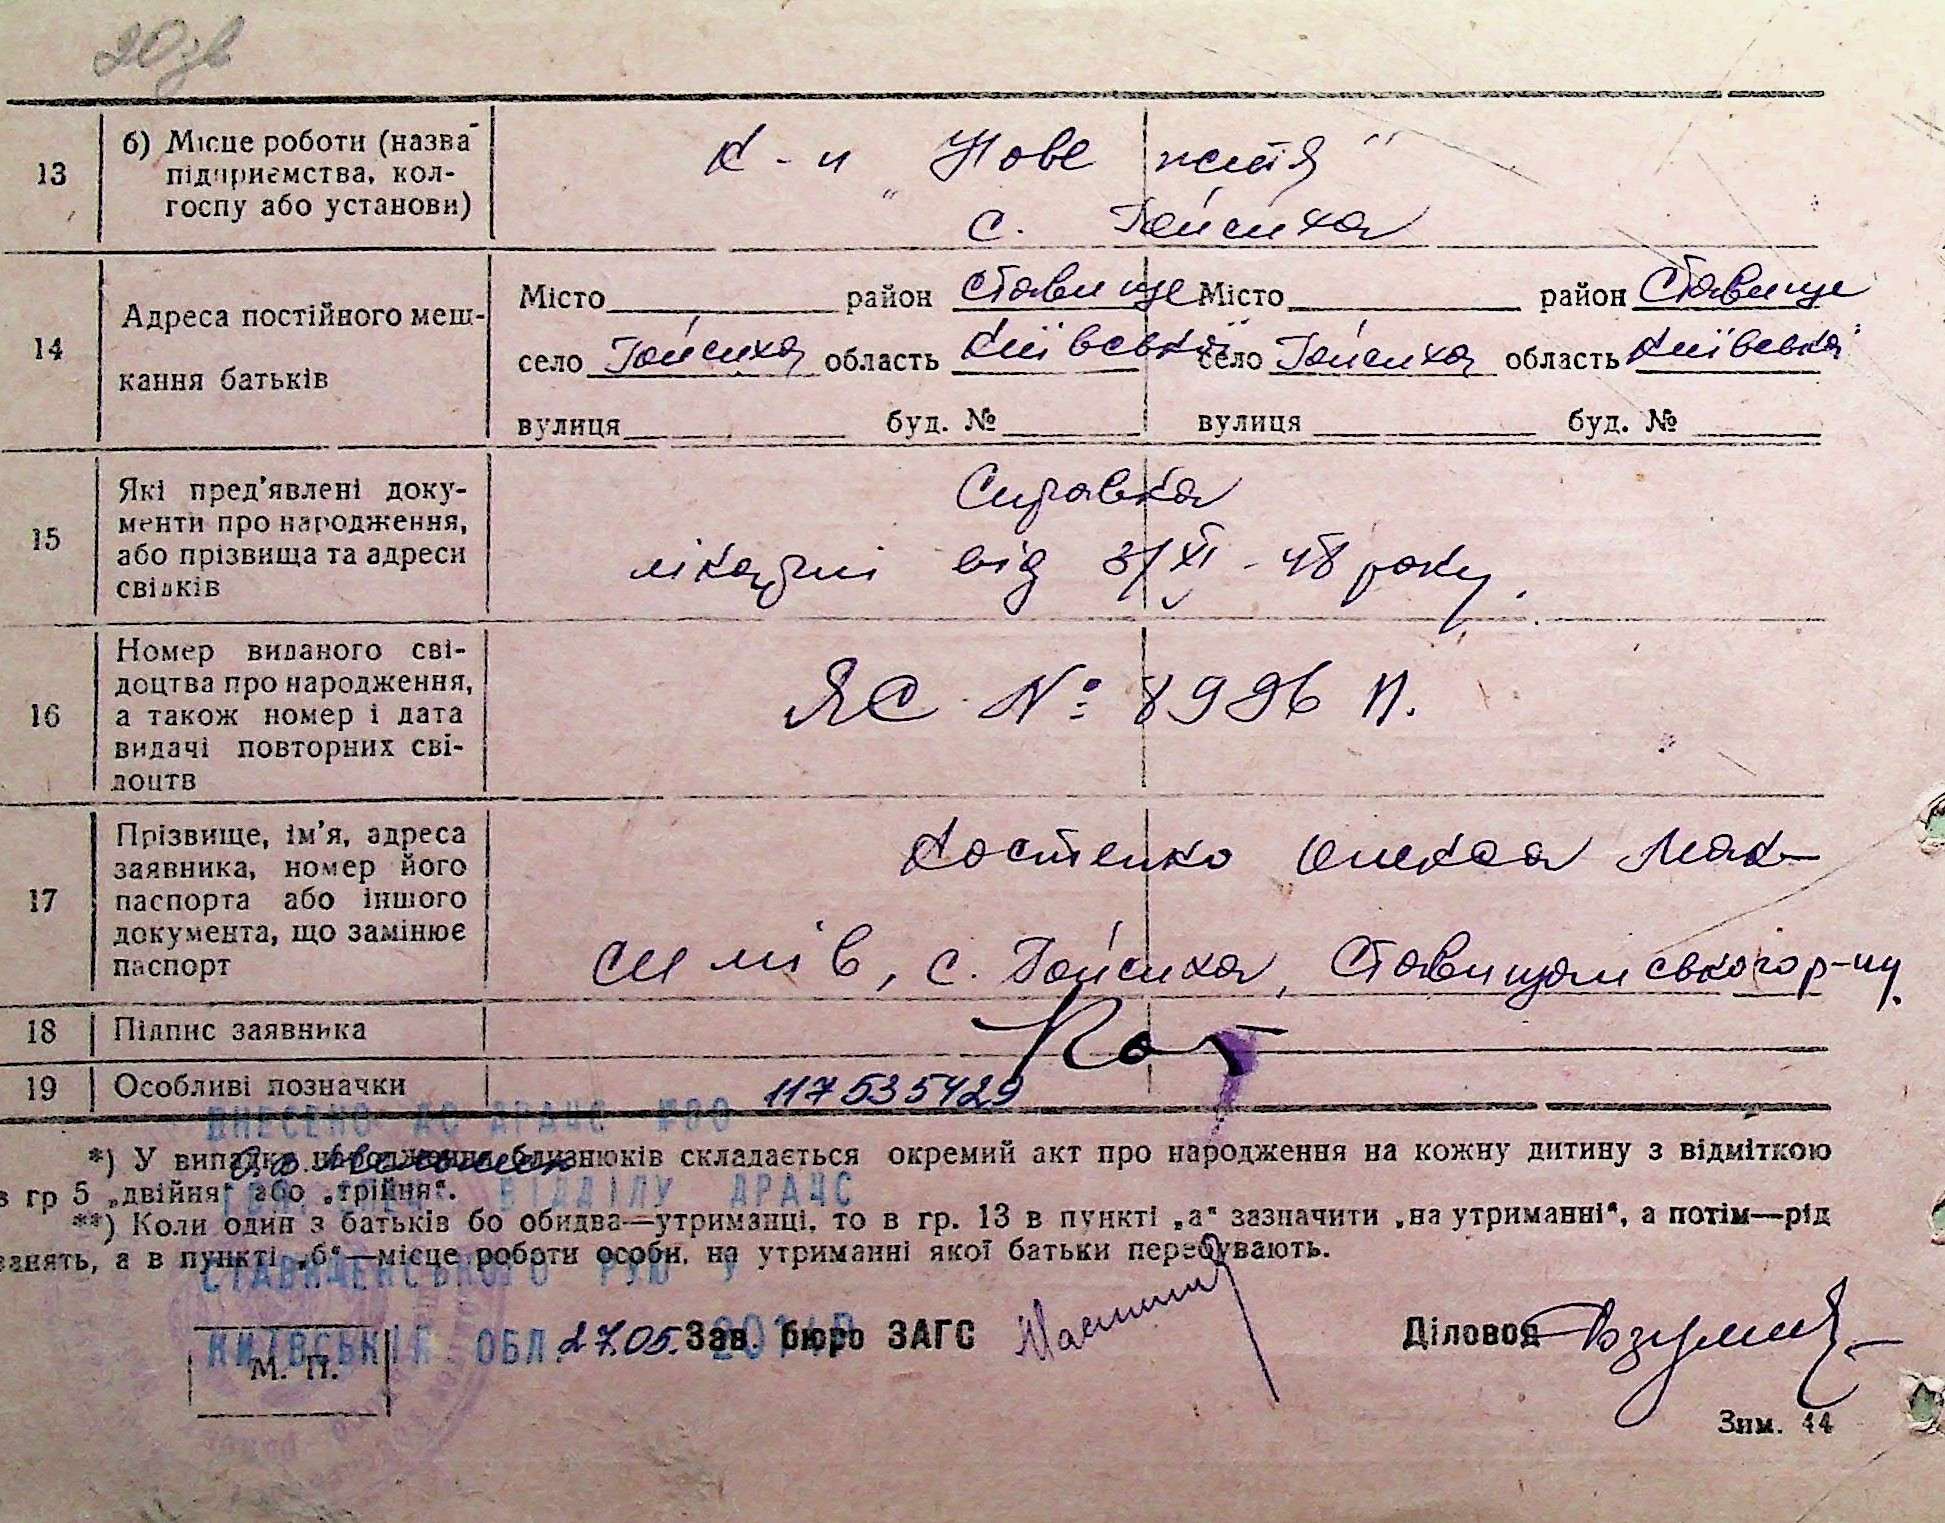 20зв
13
б) Місце роботи (назва
підприємства, кол-
госпу або установи)
к-п „Нове життя"
с. Гейсиха
14
Адреса постійного меш-
кання батьків
Місто район Ставище Місто район Ставище
село Гейсиха область Київської село Гейсиха область Київська
вулиця буд. № вулиця буд. №
15
Які пред'явлені доку-
менти про народження,
або прізвища та адреси
свідків
Справка
лікарні від XI - 48 року.
16
Номер виданого сві-
доцтва про народження,
а також номер і дата
видачі повторних сві-
доцтв
ЯС № 8996
17
Прізвище, ім'я, адреса
заявника, номер його
паспорта або іншого
документа, що замінює
паспорт
Костенко Олекса Мак-
симів, с. Гейсиха, Ставищанського р-ну.
18
Підпис заявника
19
Особливі позначки
117535429
ВНЕСЕНО ДО ДРАЦС №00
*) У випадку народження близнюків складається окремий акт про народження на кожну дитину з відміткою
в гр 5 „двійня" або „трійня".
ВІДДІЛУ ДРАЦС
**) Коли один з батьків бо обидва—утриманці, то в гр. 13 в пункті „а" зазначити „на утриманні", а потім—рід
занять, а в пункті „б"—місце роботи особи, на утриманні якої батьки перебувають.
СТАВИЩЕНСЬКОГО РУЮ У
КИЇВСЬКІЙ ОБЛ. 27.05.
Зав. бюро ЗАГС
Діловод
М. П.
Зим. 44